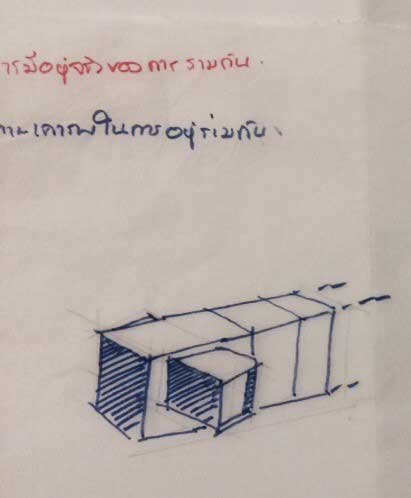 ารมีอยู่จริงของการ รวมกัน.
วามเคารพในการอยู่ร่วมกัน.